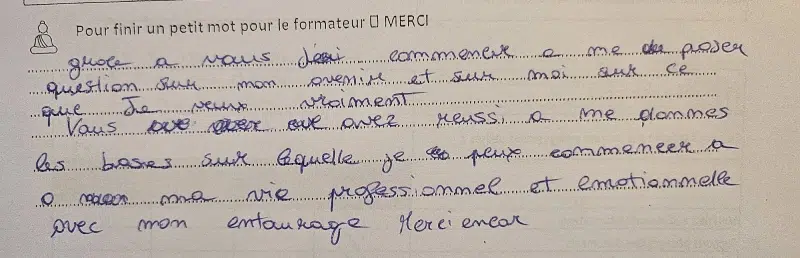 Pour finir un petit mot pour le formateur ☐ MERCI
grace a vous j'ai commencer a me poser
question sur mon avenir et sur moi sur ce
que Je veux vraiment
Vous avez reussi a me dommes
les bases sur lequelle je peux commencer a
o ma vie professionnel et emotionnelle
avec mon entourage Merci encor